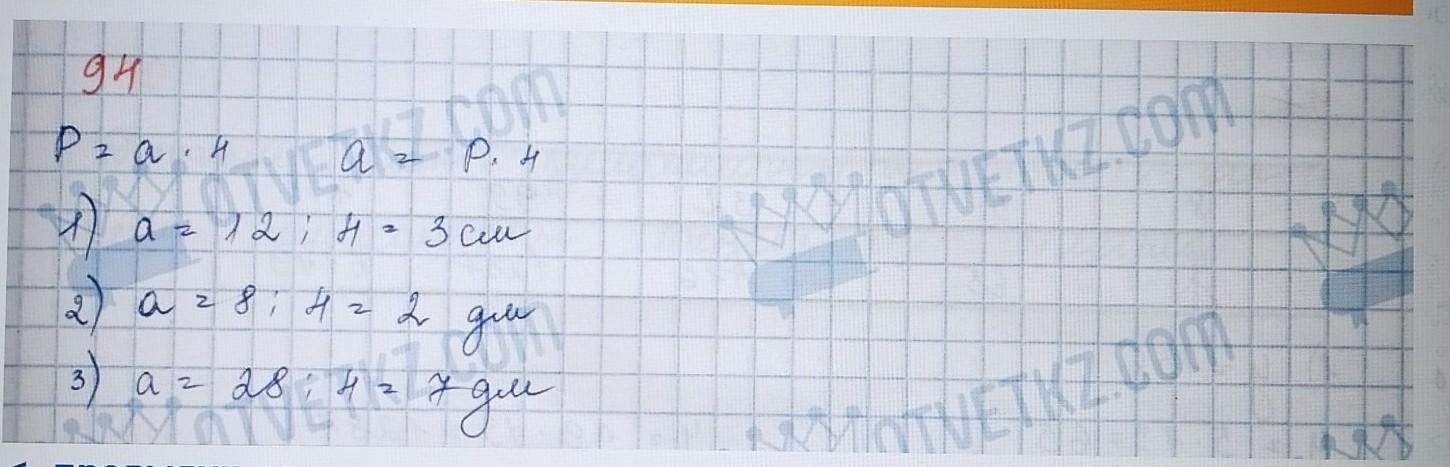 94
P = a · 4 a = P. 4
1) a = 12 : 4 = 3 см
2) a = 8 : 4 = 2 дм
3) a = 28 : 4 = 7 дм
OTVETKZ.COM
OTVETKZ.COM
OTVETKZ.COM
OTVETKZ.COM